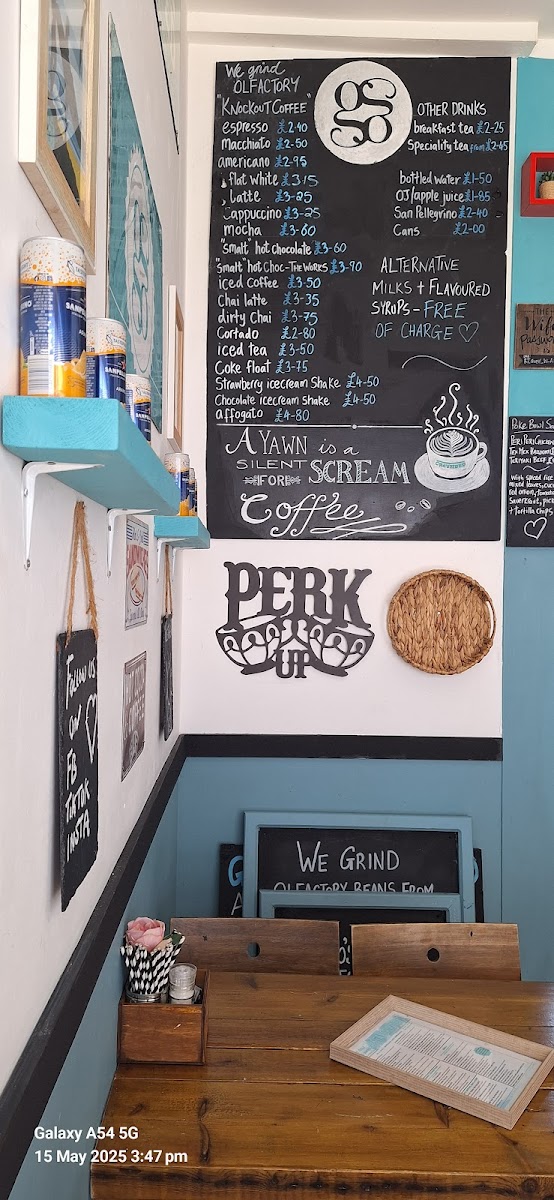 We grind
OLFACTORY
"KNOCKOUT COFFEE"
espresso £2-40
Macchiato £2-50
americano £2-95
flat white £3/15
Latte £3-25
Cappuccino £3-25
mocha £3-80
"smalt" hot chocolate £3-60
"smalt" hot Choc-THE WORKS £3-70
iced coffee £3-50
Chai latte £3-35
dirty Chai £3-75
Cortado £2-80
iced tea £3-50
Coke float £3-75
Strawberry icecream Shake £4-50
Chocolate icecream shake £4-50
affogato £4-80
OTHER DRINKS
breakfast tea £2-25
Speciality tea from £2-45
bottled water £1-50
OJ/apple juice £1-85
San Pellegrino £2-40
Cans £2-00
ALTERNATIVE
MILKS + FLAVOURED
SYRUPS - FREE
OF CHARGE
A YAWN is a
SILENT SCREAM
FOR
Coffee
PERK
UP
THE
Wifi
Password
Poke Bowl
PERI PERI CHICKEN
TERIYAKI BEEF
With spiced rice
mixed leaves,
red onion,
+ tortilla chips
FOLLOW US
ON
FB
TIKTOK
INSTA
WE GRIND
OLFACTORY BEANS FROM
Galaxy A54 5G
15 May 2025 3:47 pm